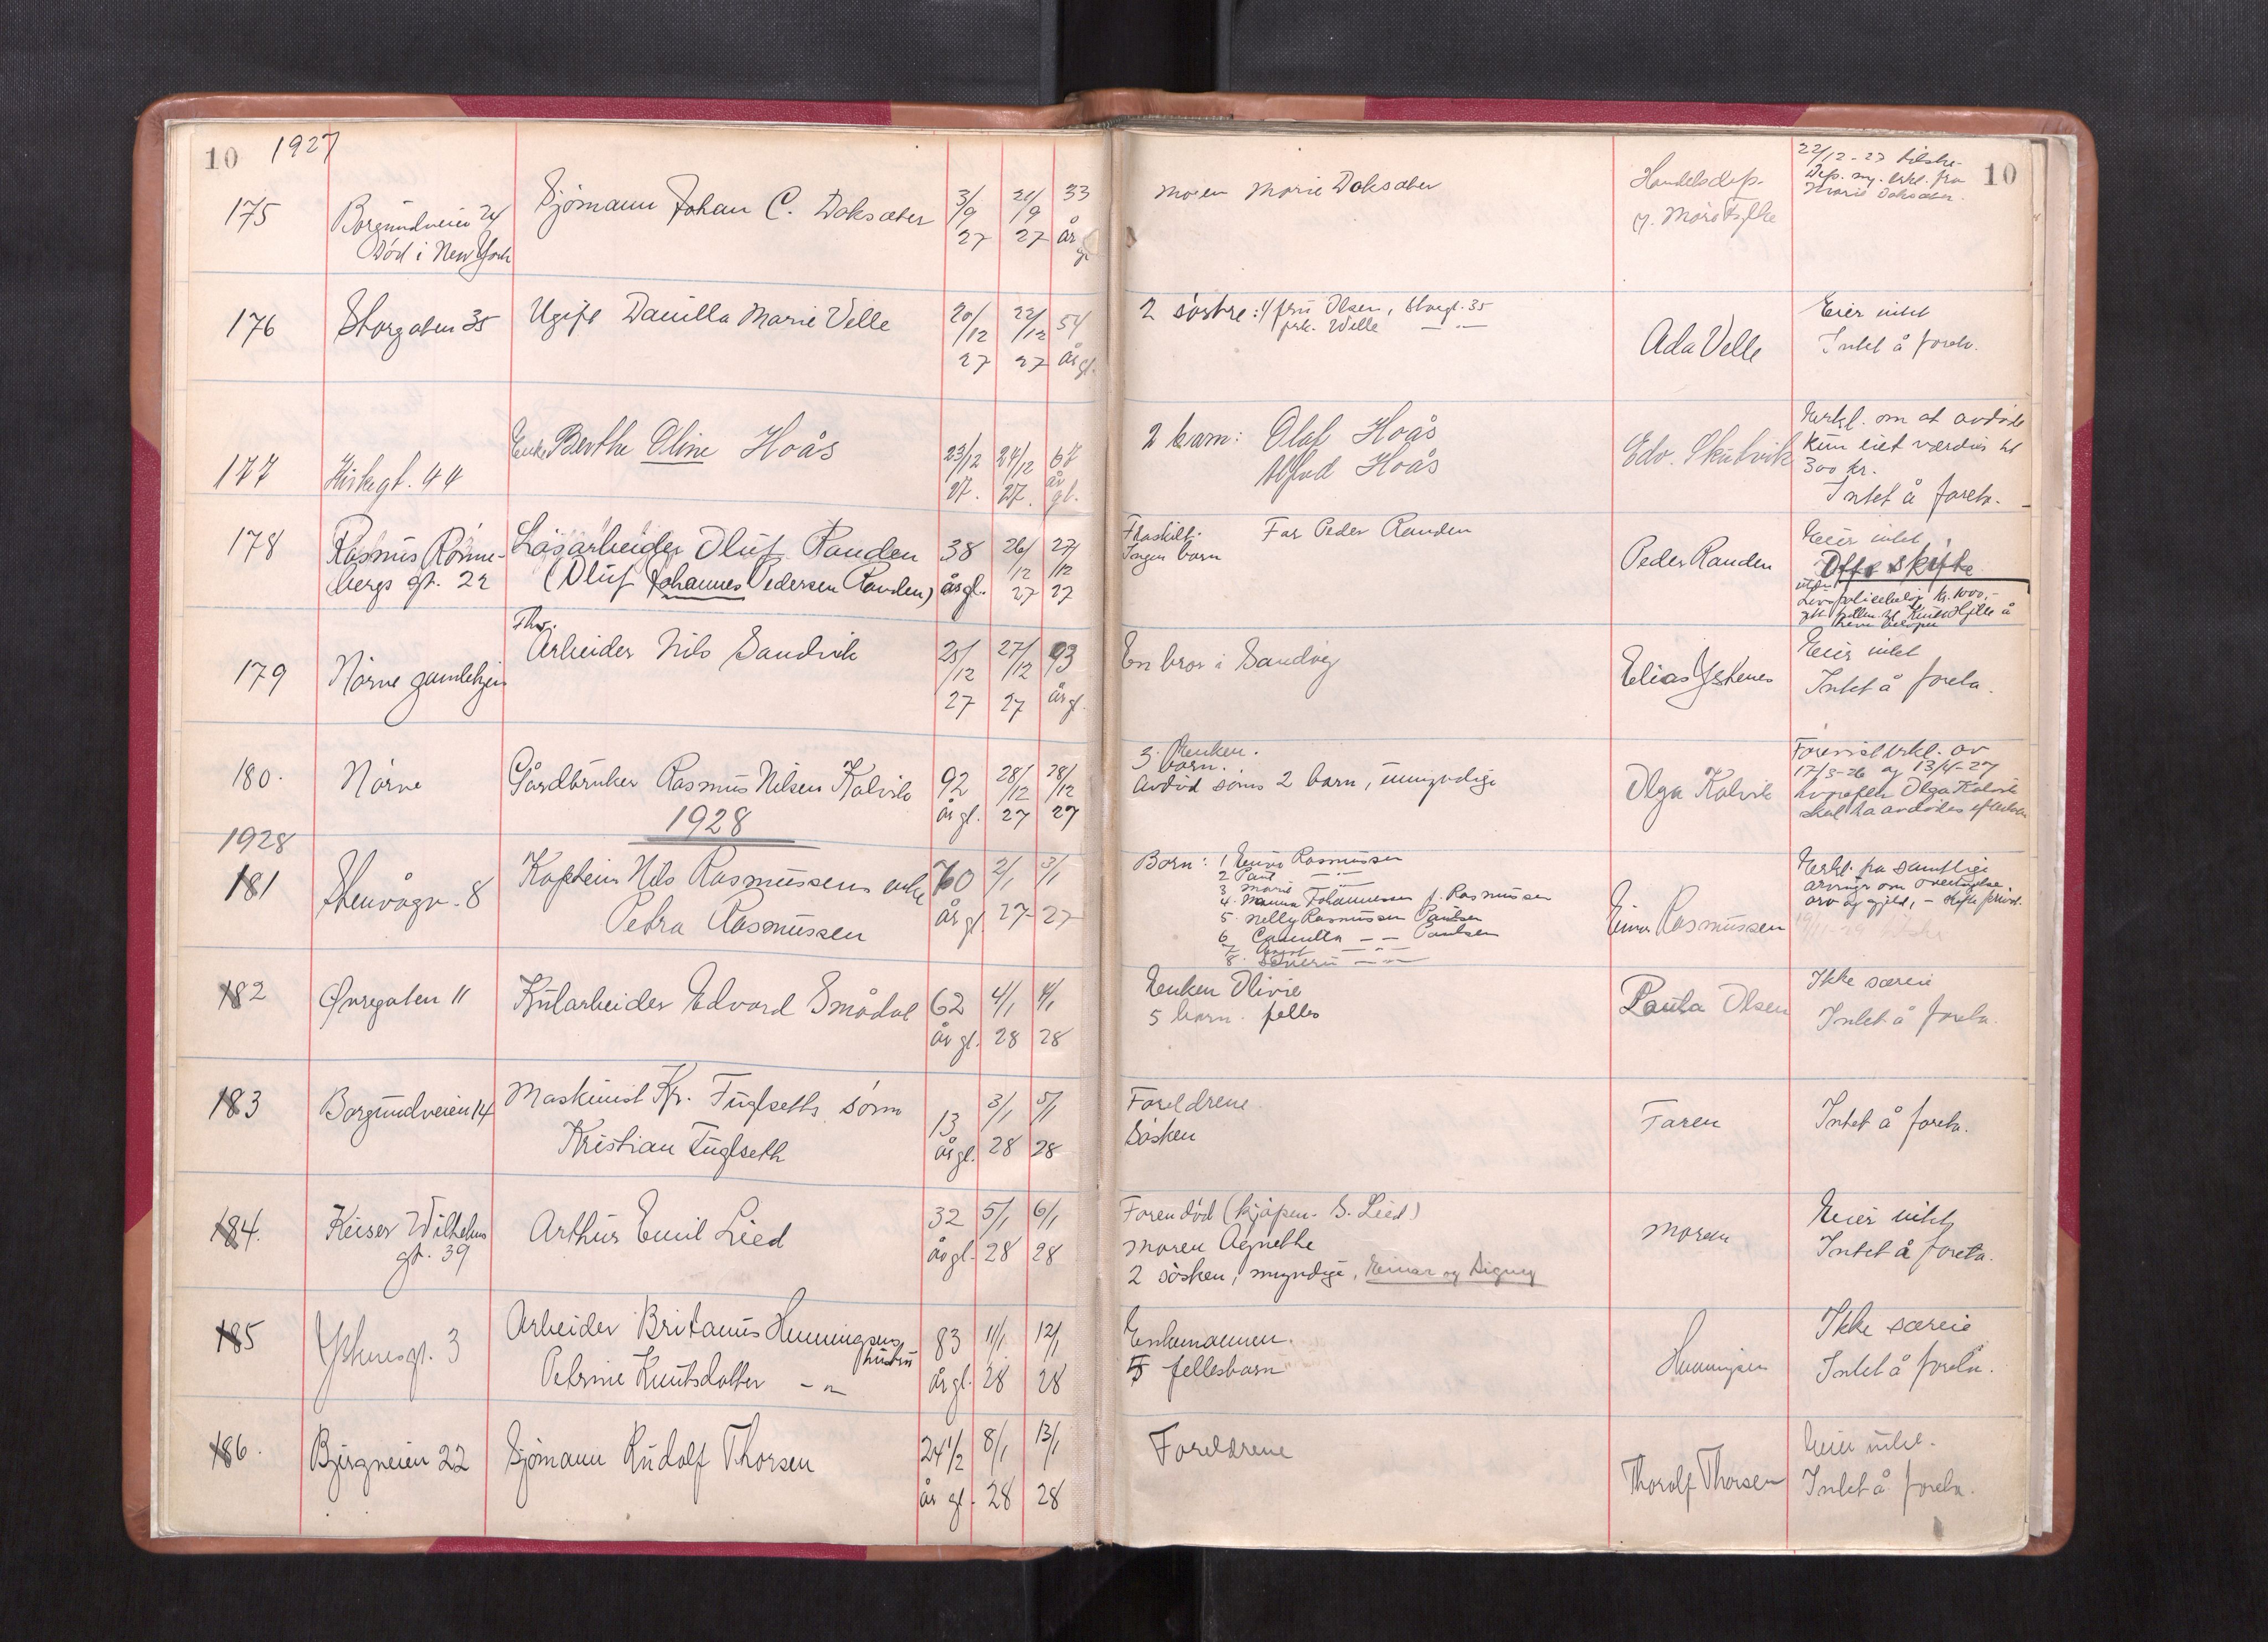 10 1927
175 Borgundveien 24 Sjömann Johan C. Doksæter 3/9 21/9 33
Död i New York 27 27 år gl.
moren Marie Doksæter Handelsdep. 22/12-27
g. Möre fylke Dep. ny. erkl. fra
10 Marie Doksæter.
176 Storgaten 35 Ugift Danilla Marie Velle 20/12 22/12 54
27 27 år gl.
2 söstre: 1/ fru Olsen, Storgt. 35 Ada Velle Eier intet
frk. Velle — " — Intet å foreta.
177 Kirkegt. 44 Enke Berthe Oline Hoås 23/12 24/12 67 år gl.
27. 27.
2 barn: Olaf Hoås Edv. Skutvik Erkl. om at avdöde
Alfred Hoås kun eiet værdier til
300 kr.
Intet å foreta.
178 Rasmus Rönne- Lösarbeider Oluf Randen 38 26/12 27/12
bergs gt. 22 (Oluf Johannes Pedersen Randen) år gl. 27 27
Fraskilt. Far Peder Randen Peder Randen Eier intet
Ingen barn Off. skifte
Livspolisebelöp kr. 1000,-
179 Nörve gamlehjem Fhv.
Arbeider Nils Sandvik 25/12 27/12 93
27 27 år gl.
En bror i Sandvig Elias Ystenes Eier intet
Intet å foreta.
180. Nörve Gårdbruker Rasmus Nilsen Kalvik 92 28/12 28/12
år gl. 27 27
Enken. Olga Kalvik
3 barn. 17/3-26 og 13/4-27
Avdöd söns 2 barn, umyndige hvorefter Olga Kalvik
skal ha avdödes efterlat.
1928
1928
181 Stenvågv. 8 Kaptein Nils Rasmussens enke 70 2/1 3/1
Petra Rasmussen år gl. 27 27
Barn: 1 Einar Rasmussen Einar Rasmussen Erkl. fra samtlige
2 Paul — " — arvinger om overtagelse
3 Marie — " — arv og gjeld, - skifte privat.
4. Manna Johannessen f. Rasmussen
5. Nelly Rasmussen Paulsen
6 Camilla — — Paulsen
7
8.
182 Övregaten 11 Kularbeider Edvard Smådal 62 4/1 4/1
år gl. 28 28
Enken Olivie Paula Olsen Ikke særeie
5 barn felles Intet å foreta.
183 Borgundveien 14 Maskinist Kr. Fuglseths sönn 13 3/1 5/1
Kristian Fuglseth år gl. 28 28
Foreldrene Faren Intet å foreta.
Sösken
184. Keiser Wilhelms Arthur Emil Lied 32 5/1 6/1
gt. 39 år gl. 28 28
Faren död (kjöpm. S. Lied) Moren Eier intet
Moren Agnethe Intet å foreta.
2 sösken, myndige, Einar og Signy
185 Ystenesgt. 3 Arbeider Britanus Henningsens 83 11/1 12/1
hustru
Petrine Knutsdatter — " — år gl. 28 28
Enkemannen. Henningsen Ikke særeie
5 fellesbarn Intet å foreta.
186. Bjergveien 22 Sjömann Rudolf Thorsen 24 1/2 8/1 13/1
år gl. 28 28
Foreldrene Thorolf Thorsen Eier intet.
Intet å foreta.